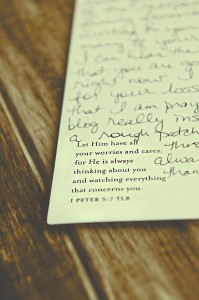 for
many
I can
that you are go
right now
for your loss
that I am pray
blog really ins
a rough patch
thr
alwa
than
Let Him have all
your worries and cares,
for He is always
thinking about you
and watching everything
that concerns you.
1 PETER 5:7 TLB